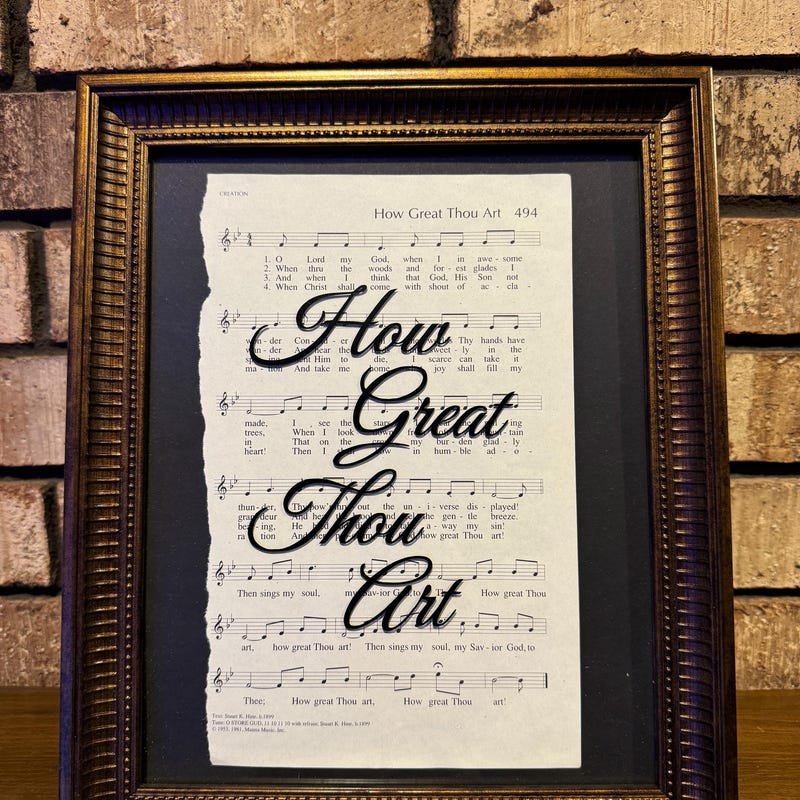 CREATION
How Great Thou Art 494
1. O Lord my God, when I in awe - some
2. When thru the woods and for - est glades I
3. And when I think that God, His Son not
4. When Christ shall come with shout of ac - cla -
How
won - der Con - er Thy hands have
wan - der And hear the sweet - ly in the
sent Him to die, I scarce can take it
ma - tion And take me home joy shall fill my
Great
made, I see the stars ing
trees, When I look down tain
in That on the cross my bur - den glad - ly
heart! Then I in hum - ble ad - o -
Thou
thun - der, Thy pow'r out the un - i - verse dis - played!
gran - deur And hear the gen - tle breeze.
bear - ing, He a - way my sin!
ra tion And how great Thou art!
Art
Then sings my soul, my Sav - ior God, to How great Thou
art, how great Thou art! Then sings my soul, my Sav - ior God, to
Thee; How great Thou art, How great Thou art!
Text: Stuart K. Hine, b.1899
Tune: O STORE GUD, 11 10 11 10 with refrain; Stuart K. Hine, b.1899
© 1953, 1981, Manna Music, Inc.